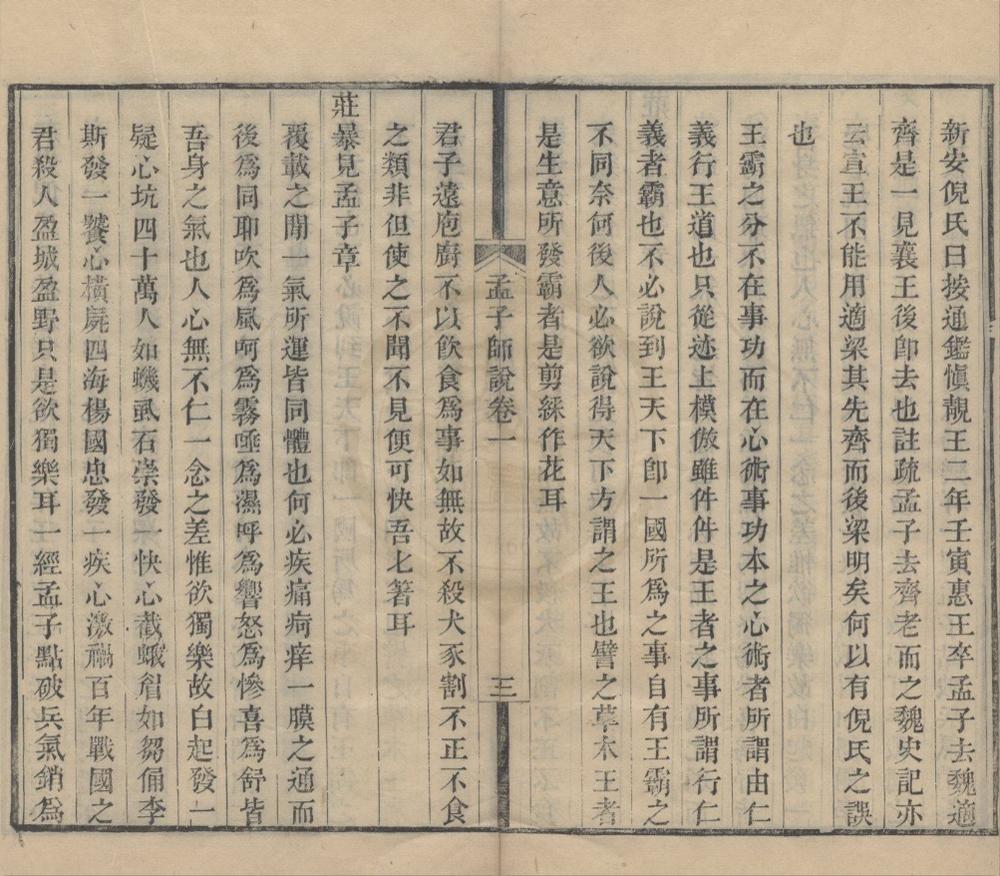 新安倪氏曰按通鑑愼靚王二年壬寅惠王卒孟子去魏適
齊是一見襄王後卽去也註疏孟子去齊老而之魏史記亦
云宣王不能用適梁其先齊而後梁明矣何以有倪氏之誤
也
王霸之分不在事功而在心術事功本之心術者所謂由仁
義行王道也只從迹上模倣雖件件是王者之事所謂行仁
義者霸也不必說到王天下卽一國所爲之事自有王霸之
不同奈何後人必欲說得天下方謂之王也譬之草木王者
是生意所發霸者是剪綵作花耳
孟子師說卷一
三
君子遠庖廚不以飲食爲事如無故不殺犬豕割不正不食
之類非但使之不聞不見便可快吾匕箸耳
莊暴見孟子章
覆載之閒一氣所運皆同體也何必疾痛疴痒一膜之通而
後爲同耶吹爲風呵爲霧唾爲濕呼爲響怒爲慘喜爲舒皆
吾身之氣也人心無不仁一念之差惟欲獨樂故白起發一
疑心坑四十萬人如蟣虱石崇發一快心截蛾眉如芻俑李
斯發一饕心橫屍四海楊國忠發一疾心激禍百年戰國之
君殺人盈城盈野只是欲獨樂耳一經孟子點破兵氣銷爲